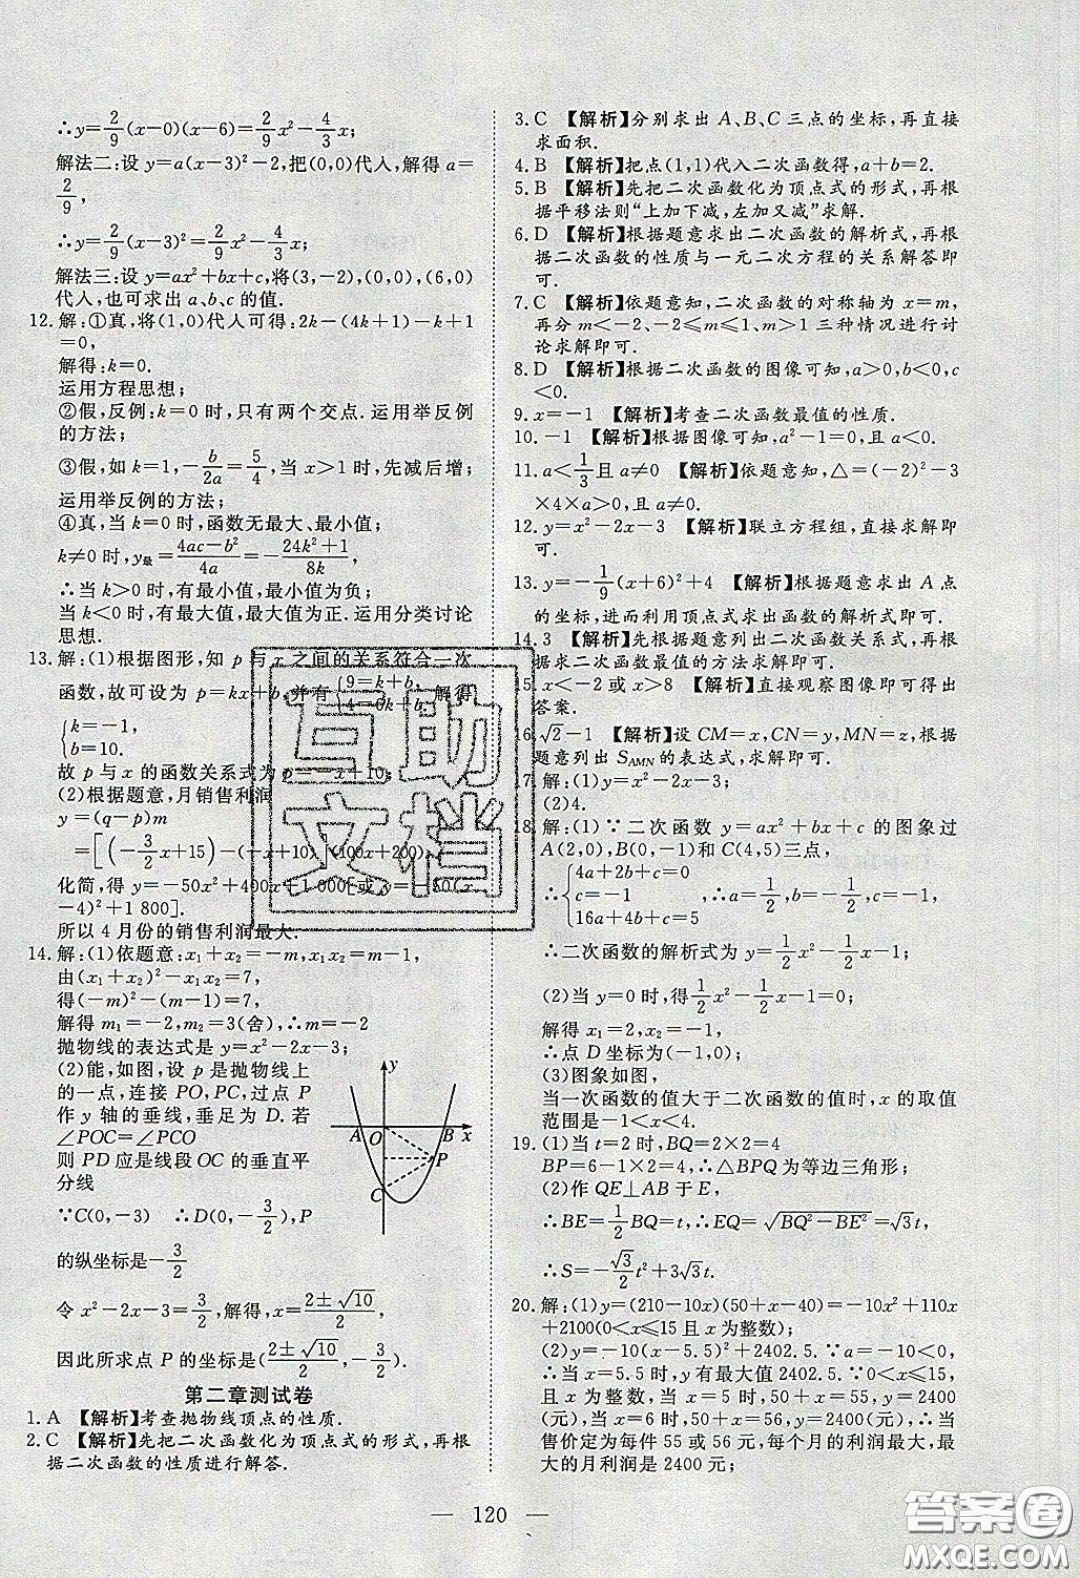 ∴y=2/9(x-0)(x-6)=2/9x²-4/3x;
解法二:设 y=a(x-3)²-2,把(0,0)代人,解得 a=
2/9,
∴y=2/9(x-3)²=2/9x²-4/3x;
解法三:设 y=ax²+bx+c,将(3,-2),(0,0),(6,0)
代人,也可求出 a、b、c 的值.
12.解:①真,将(1,0)代人可得:2k-(4k+1)-k+1
=0,
解得:k=0.
运用方程思想;
②假,反例:k=0 时,只有两个交点.运用举反例
的方法;
③假,如 k=1,-b/2a=5/4,当 x>1 时,先减后增;
运用举反例的方法;
④真,当 k=0 时,函数无最大、最小值;
k≠0 时,y最=(4ac-b²)/4a=-(24k²+1)/8k,
∴当 k>0 时,有最小值,最小值为负;
当 k<0 时,有最大值,最大值为正.运用分类讨论
思想.
13.解:(1)根据图形,知 p 与 x 之间的关系符合一次
函数,故可设为 p=kx+b,并有{9=k+b, 4=6k+b. 解得
{k=-1, b=10.
故 p 与 x 的函数关系式为 p=-x+10;
(2)根据题意,月销售利润
y=(q-p)m
=[(-3/2x+15)-(-x+10)](100x+200),
化简,得 y=-50x²+400x+1 000[或 y=-50(x
-4)²+1 800].
所以 4 月份的销售利润最大.
14.解:(1)依题意:x₁+x₂=-m,x₁x₂=m-1,
由(x₁+x₂)²-x₁x₂=7,
得(-m)²-(m-1)=7,
解得 m₁=-2,m₂=3(舍),∴m=-2
抛物线的表达式是 y=x²-2x-3;
(2)能,如图,设 p 是抛物线上
的一点,连接 PO,PC,过点 P
作 y 轴的垂线,垂足为 D.若
∠POC=∠PCO
则 PD 应是线段 OC 的垂直平
分线
∵C(0,-3) ∴D(0,-3/2),P
的纵坐标是-3/2
令 x²-2x-3=3/2,解得,x=(2±√10)/2,
因此所求点 P 的坐标是((2±√10)/2,-3/2).
y
A O B x
P
C
第二章测试卷
1.A 【解析】考查抛物线顶点的性质.
2.C 【解析】先把二次函数化为顶点式的形式,再根
据二次函数的性质进行解答.
3.C 【解析】分别求出 A、B、C 三点的坐标,再直接
求面积.
4.B 【解析】把点(1,1)代入二次函数得,a+b=2.
5.B 【解析】先把二次函数化为顶点式的形式,再根
据平移法则“上加下减,左加又减”求解.
6.D 【解析】根据题意求出二次函数的解析式,再根
据二次函数的性质与一元二次方程的关系解答即
可.
7.C 【解析】依题意知,二次函数的对称轴为 x=m,
再分 m<-2、-2≤m≤1、m>1 三种情况进行讨
论求解即可.
8.D 【解析】根据二次函数的图像可知,a>0,b<0,c
<0.
9.x=-1 【解析】考查二次函数最值的性质.
10.-1 【解析】根据图像可知,a²-1=0,且 a<0.
11.a<1/3且 a≠0 【解析】依题意知,△=(-2)²-3
×4×a>0,且 a≠0.
12.y=x²-2x-3 【解析】联立方程组,直接求解即
可.
13.y=-1/9(x+6)²+4 【解析】根据题意求出 A 点
的坐标,进而利用顶点式求出函数的解析式即可.
14.3 【解析】先根据题意列出二次函数关系式,再根
据求二次函数最值的方法求解即可.
15.x<-2 或 x>8 【解析】直接观察图像即可得出
答案.
16.√2-1 【解析】设 CM=x,CN=y,MN=z,根据
题意列出 S_AMN 的表达式,求解即可.
17.解:(1)y=x²-2x-3;
(2)4.
18.解:(1)∵二次函数 y=ax²+bx+c 的图象过
A(2,0),B(0,-1)和 C(4,5)三点,
∴{4a+2b+c=0 c=-1 16a+4b+c=5 ∴a=1/2,b=-1/2,c=-1
∴二次函数的解析式为 y=1/2x²-1/2x-1.
(2)当 y=0 时,得1/2x²-1/2x-1=0;
解得 x₁=2,x₂=-1,
∴点 D 坐标为(-1,0);
(3)图象如图,
当一次函数的值大于二次函数的值时,x 的取值
范围是-1<x<4.
19.(1)当 t=2 时,BQ=2×2=4
BP=6-1×2=4,∴△BPQ 为等边三角形;
(2)作 QE⊥AB 于 E,
∴BE=1/2BQ=t,∴EQ=√(BQ²-BE²)=√3t,
∴S=-√3/2t²+3√3t.
20.解:(1)y=(210-10x)(50+x-40)=-10x²+110x
+2100(0<x≤15 且 x 为整数);
(2)y=-10(x-5.5)²+2402.5.∵a=-10<0,
∴当 x=5.5 时,y 有最大值 2402.5.∵0<x≤15,
且 x 为整数,当 x=5 时,50+x=55,y=2400
(元),当 x=6 时,50+x=56,y=2400(元)∴当
售价定为每件 55 或 56 元,每个月的利润最大,最
大的月利润是 2400 元;
— 120 —
互助
文档
答案圈
MXQE.COM